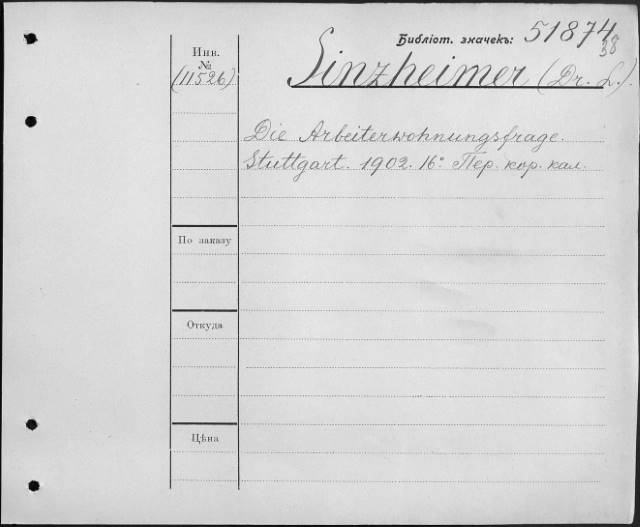 Библіот. значекъ: 51874
38
Инв.
№
(11526)
Sinzheimer (Dr. L.).
Die Arbeiterwohnungsfrage.
Stuttgart. 1902. 16° Пер. кор. кал.
По заказу
Откуда
Цѣна